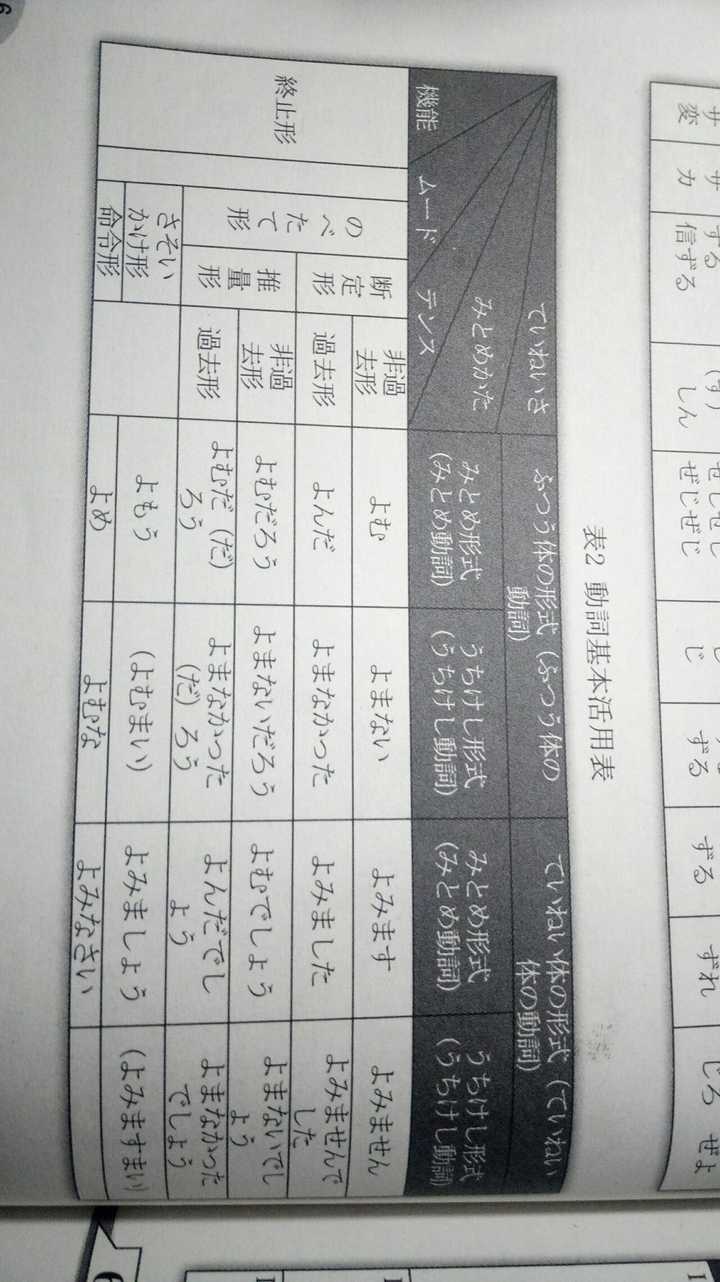 サ変
サカ
する
信ずる
しん
ぜじぜじ
ずる
ずる
ずれ
じろ ぜよ
表2 動詞基本活用表
ていねいさ
みとめかた
テンス
ムード
機能
ふつう体の形式（ふつう体の
動詞）
ていねい体の形式（ていねい
体の動詞）
みとめ形式
（みとめ動詞）
うちけし形式
（うちけし動詞）
みとめ形式
（みとめ動詞）
うちけし形式
（うちけし動詞）
終止形
のべたて形
断定形
非過去形
よむ
よまない
よみます
よみません
過去形
よんだ
よまなかった
よみました
よみませんで
した
推量形
非過去形
よむだろう
よまないだろう
よむでしょう
よまないでし
ょう
過去形
よむだ（だ）
ろう
よまなかった
（だ）ろう
よんだでし
ょう
よまなかった
でしょう
さそい
かけ形
よもう
（よむまい）
よみましょう
（よみますまい）
命令形
よめ
よむな
よみなさい
6